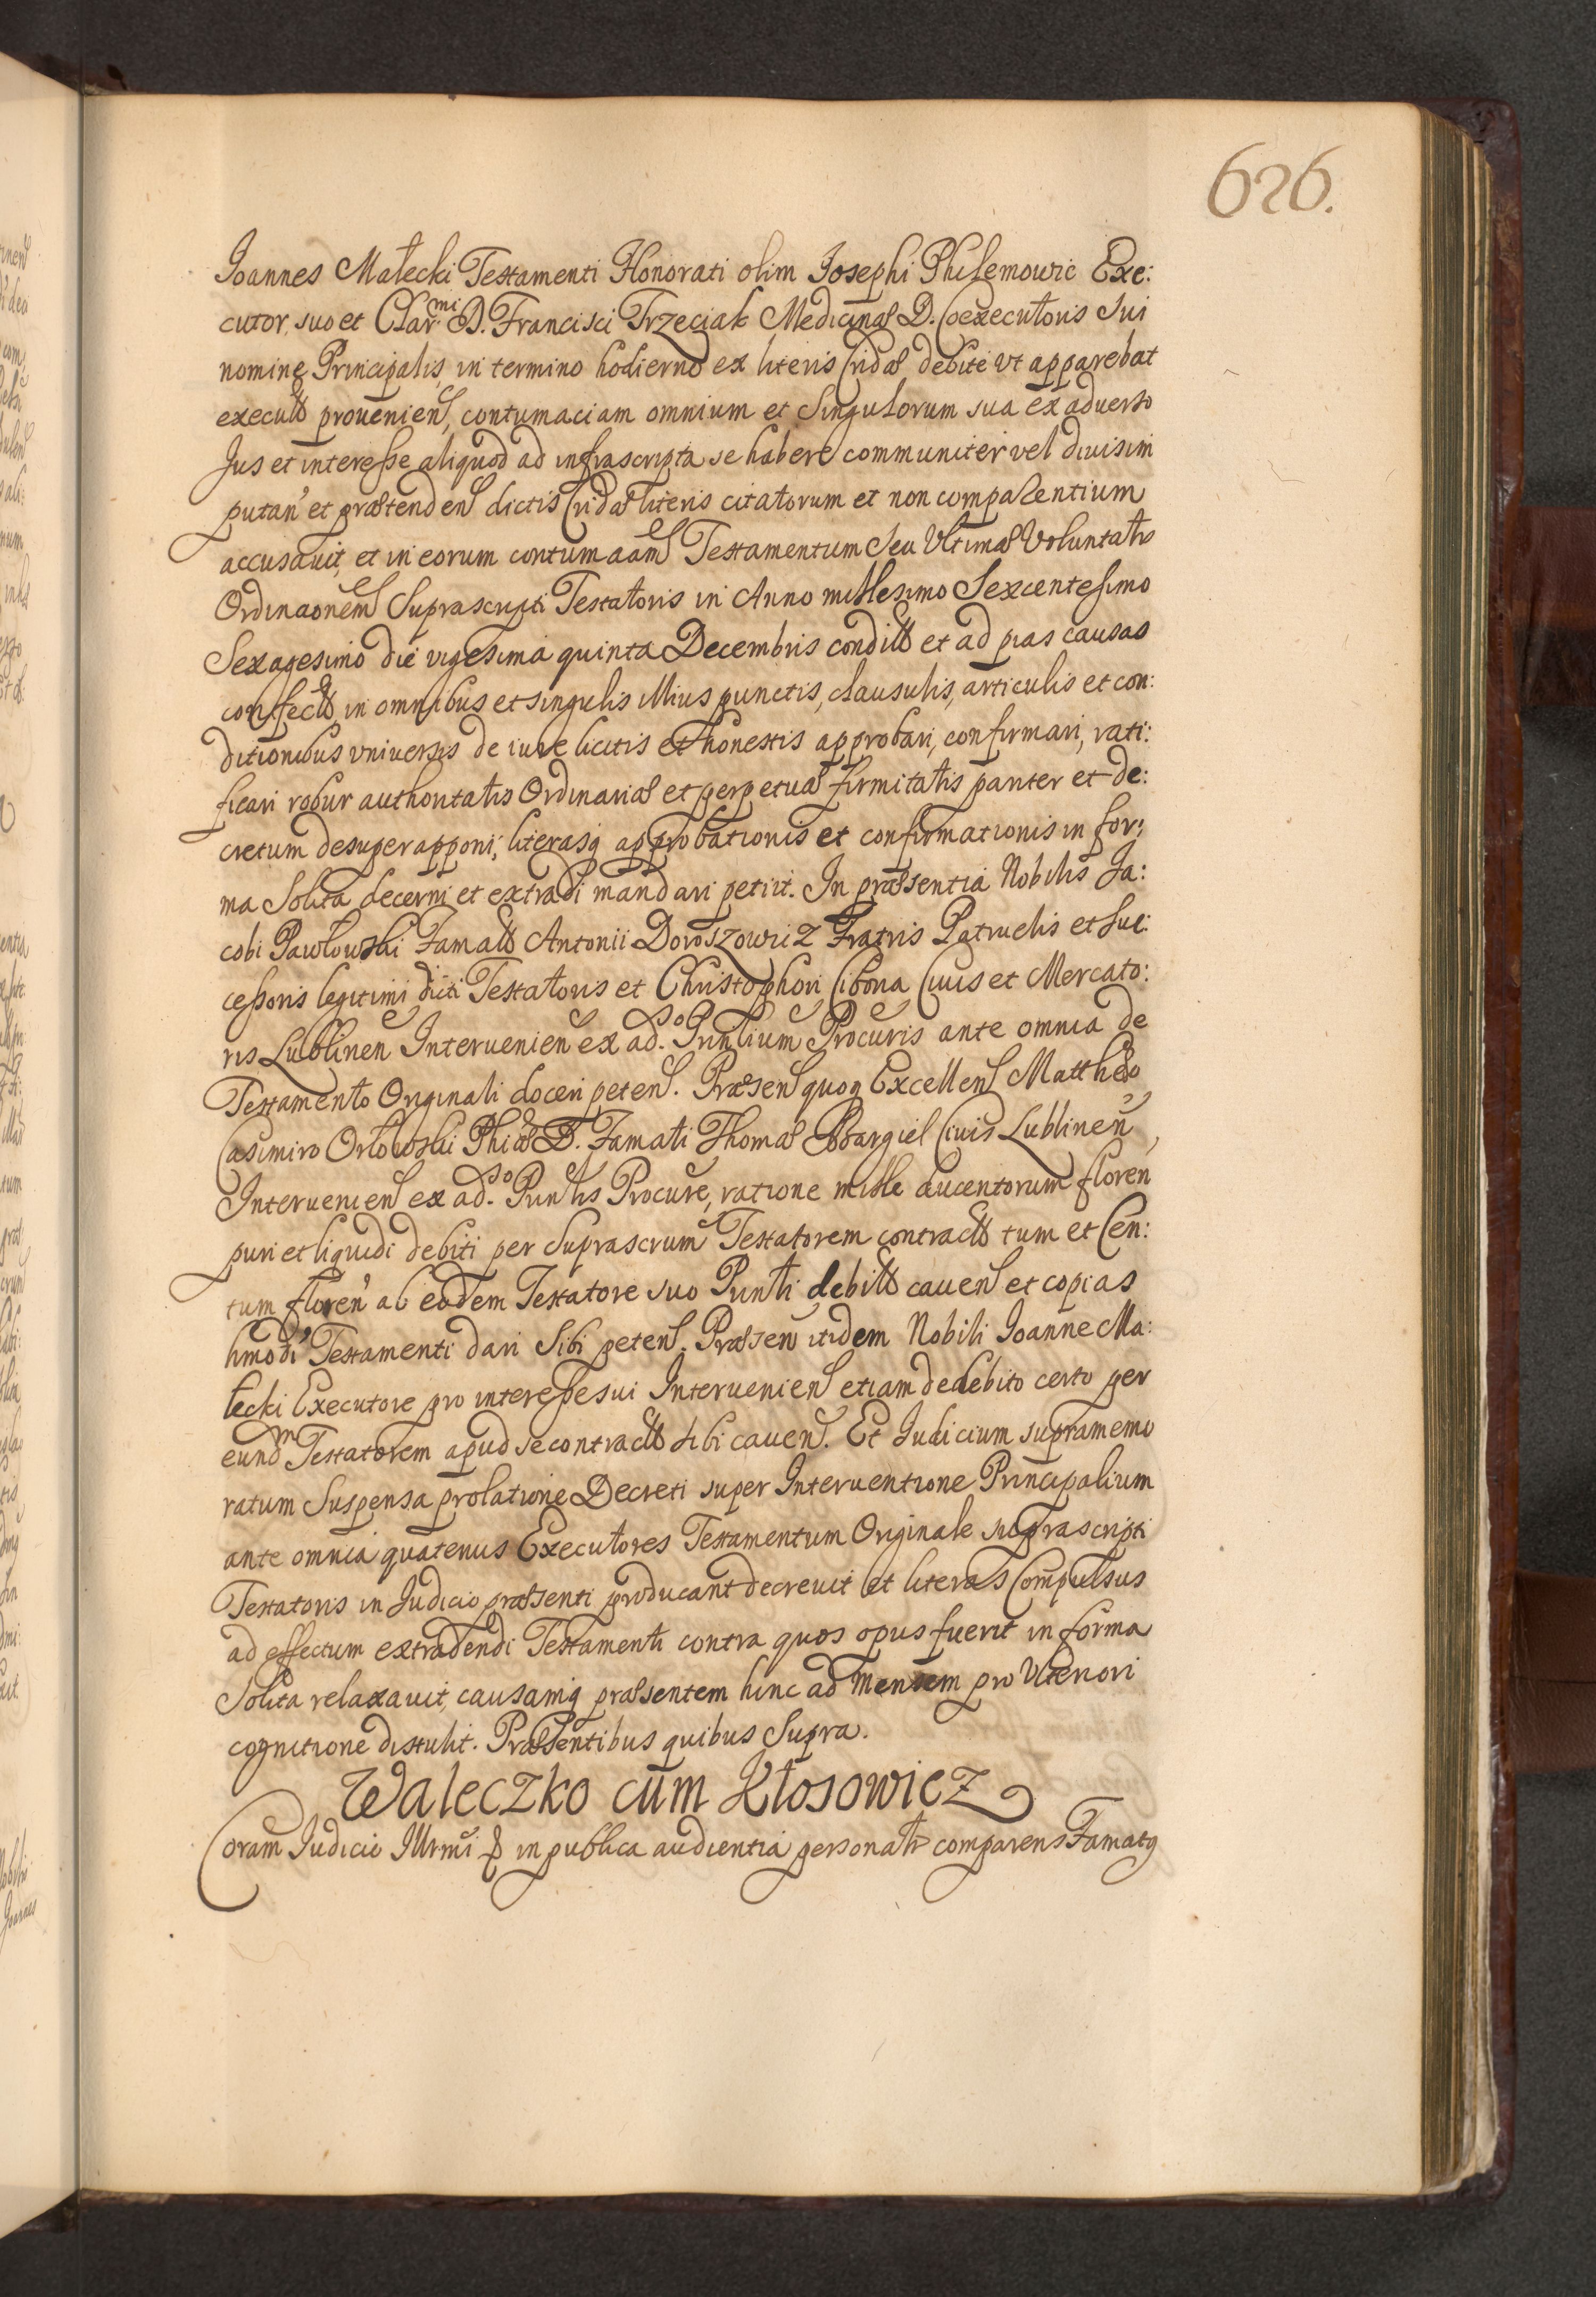 626.
Joannes Małecki Testamenti Honorati olim Josephi Philemowic Exe:
cutor, suo et Clar:mi D. Francisci Trzeciak Medicinæ D. Coexecutoris sui
nomine Principalis, in termino hodierno ex literis Cridæ debite vt apparebat
execut. prouenien, contumaciam omnium et singulorum sua ex aduerso
Jus et interesse aliquod ad infrascripta se habere communiter vel diuisim
putan̄ et prætenden dictis Cridæ literis citatorum et non comparentium
accusauit, et in eorum contumaām Testamentum seu Vltimæ Voluntatis
Ordinaōnem Suprascripti Testatoris in Anno millesimo Sexcentesimo
Sexagesimo die vigesima quinta Decembris condit. et ad pias causas
confect. in omnibus et singulis illius punctis, clausulis, articulis et con:
ditionibus vniuersis de iure licitis et honestis approbari, confirmari, rati:
ficari robur authoritatis Ordinariæ et perpetuæ firmitatis pariter et de:
cretum desuper apponi; literasq approbationis et confirmationis in for:
ma solita decerni et extradi mandari petiit. In præsentia Nobilis Ja:
cobi Pawłowski Famat. Antonii Doroszowiz Fratris Patruelis et suc:
cessoris legitimi dicti Testatoris et Christophori Cibona Ciuis et Mercato:
ris Lublinen Interuenien ex ad.so Prinlium Procuris ante omnia de
Testamento Originali doceri peten. Præsen quoq Excellen Matthæo
Casimiro Orłowski Phiæ D. Famati Thomæ Bargiel Ciuis Lublinen̄,
Interuenien ex ad.so Prinlis Procure, ratione mille ducentorum floren
puri et liquidi debiti per Suprascrum Testatorem contract. tum et Cen:
tum floren̄ ab eodem Testatore suo Prinli debit. cauen et copias
hmōdi Testamenti dari sibi peten. Præsen itidem Nobili Joanne Ma:
łecki Executore pro interesse sui Interuenien etiam de debito certo per
eundm Testatorem apud se contract. sibi cauen. Et Judicium supramemo
ratum suspensa prolatione Decreti super Interuentione Principalium
ante omnia quatenus Executores Testamentum Originale suprascripti
Testatoris in Judicio præsenti producant decreuit et literas Compulsus
ad effectum extradendi Testamenti contra quos opus fuerit in forma
solita relaxauit, causamq præsentem hinc ad mensem pro Vlteriori
cognitione distulit. Præsentibus quibus supra.
Waleczko cum Kłosowicz
Coram Judicio Illrmi &c in publica audientia personatr comparens Famatq